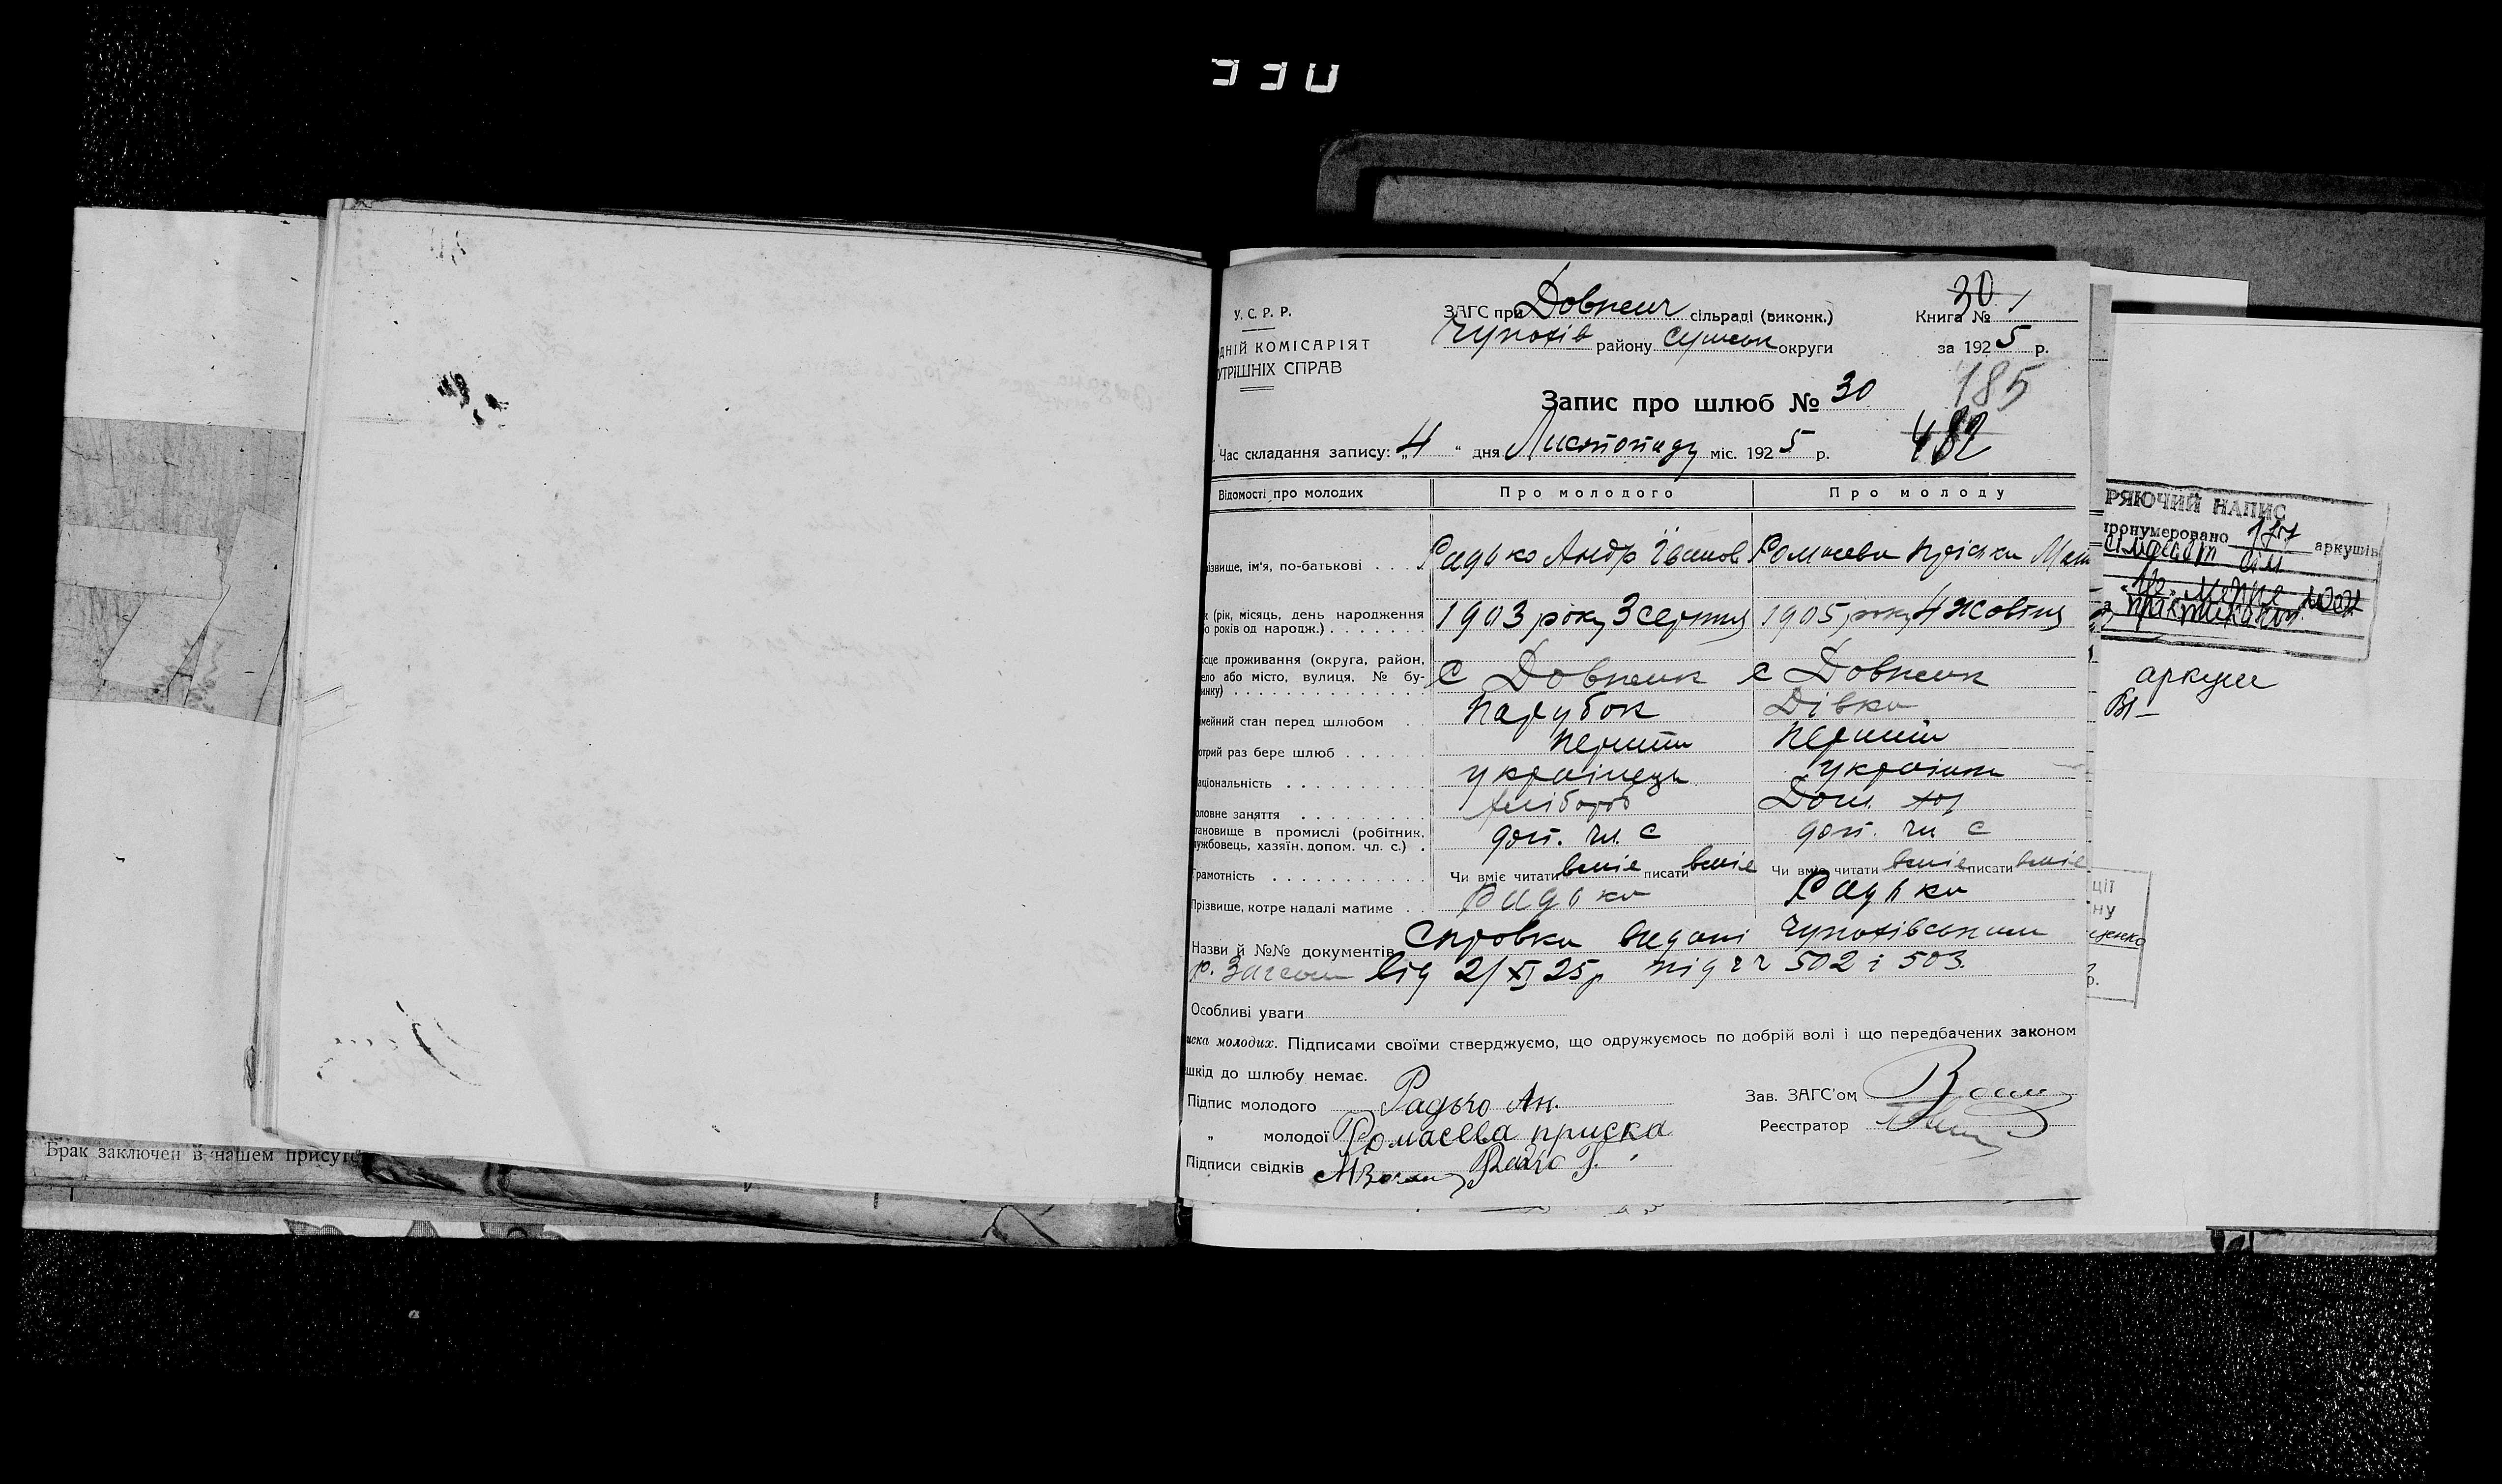 330
У. С. Р. Р.
ДНІЙ КОМІСАРІЯТ
УТРІШНІХ СПРАВ
ЗАГС при Довжеич сільраді (виконк.)
Чупахів району Сумськ округи
30
Книга № 1
за 1925 р.
185
Запис про шлюб № 30
482
Час складання запису: „4“ дня Листопаду міс. 1925 р.
Відомості про молодих
Про молодого
Про молоду
ізвище, ім'я, по-батькові . . .
Радько Андр Іванов
Ромаева Пріська Мат
к (рік, місяць, день народження
о років од народж.)
1903 року 3 серпня
1905 року 4 жовтня
ісце проживання (округа, район,
ело або місто, вулиця, № бу-
инку)
С Довжик
с Довжик
імейний стан перед шлюбом
Парубок
Дівка
отрий раз бере шлюб
перший
перший
аціональність
українець
українка
оловне заняття
хлібороб
Дом. хоз
тановище в промислі (робітник,
ужбовець, хазяїн. допом. чл. с.)
доп. чл. с
доп. чл с
Грамотність
Чи вміє читати вміє писати вміє
Чи вміє читати вміє писати вміє
Прізвище, котре надалі матиме
Радько
Радько
Назви й №№ документів Справка видані Чупахівським
р. Загсом від 2/XI 25р під чч 502 і 503.
Особливі уваги
иска молодих. Підписами своїми стверджуємо, що одружуємось по добрій волі і що передбачених законом
шкід до шлюбу немає.
Підпис молодого Радько Ан.
Зав. ЗАГС'ом
„ молодої Ромаєва приска
Реєстратор
Підписи свідків Радко Г.
РЯЮЧИЙ НАПИС
пронумеровано аркушів
аркуш
ції
ну
р.
Брак заключен в нашем присутс